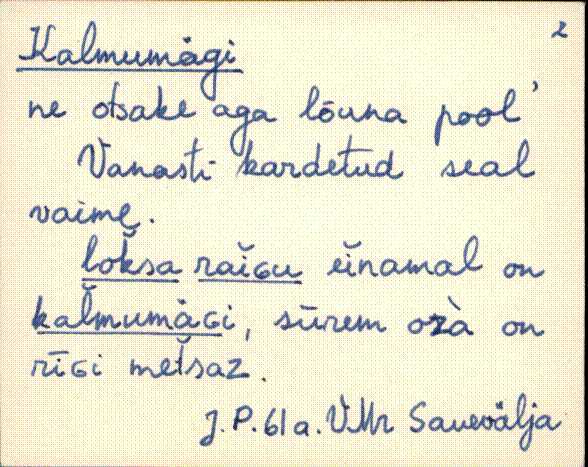 2
Kalmumägi
ne otsake aga lõuna pool'
Vanasti kardetud seal
vaime.
lok̆sa raĭɢu ĕĭnamal on
kal̆mumäɢi, sūrem ozà on
rīɢi met̆saz.
J.P. 61 a. VMr Sauevälja